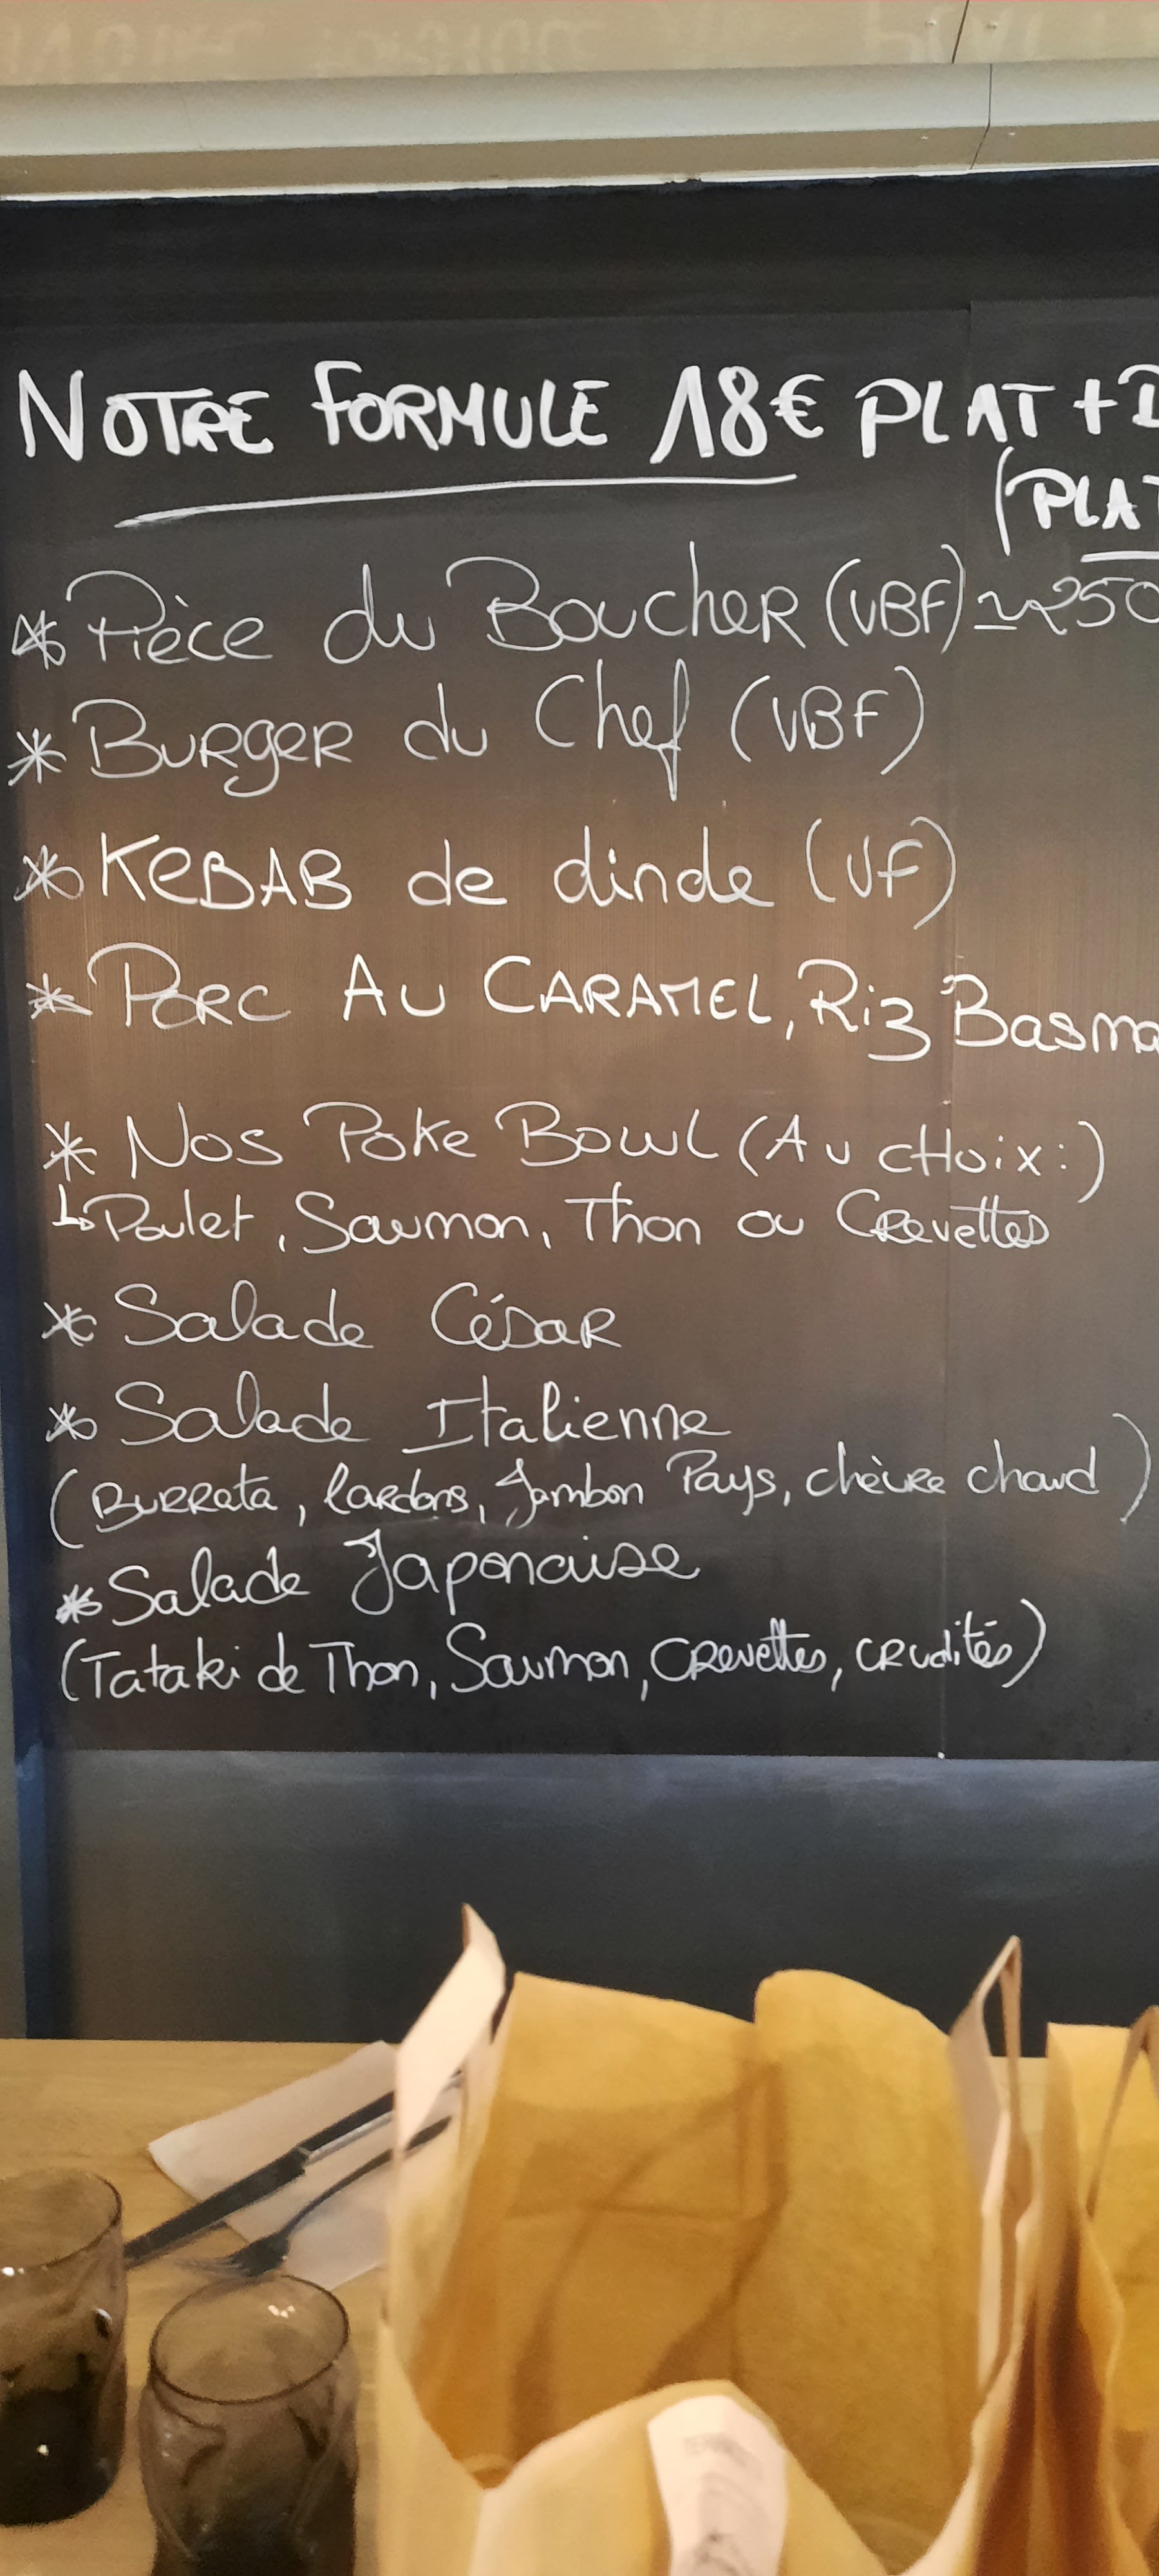 NOTRE FORMULE 18€ PLAT +
(PLAT
* Pièce du Boucher (VBF) ≃ 250
* Burger du Chef (VBF)
* KEBAB de dinde (VF)
* PORC AU CARAMEL, Riz Basma
* Nos Poke Bowl (Au choix:)
↳ Poulet, Saumon, Thon ou Crevettes
* Salade César
* Salade Italienne
(Burrata, lardons, Jambon Pays, chèvre chaud)
* Salade Japonaise
(Tataki de Thon, Saumon, Crevettes, crudités)